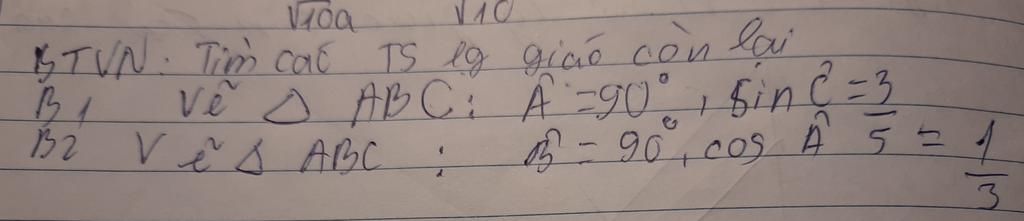 √10a √10
BTVN: Tìm các TS lg giác còn lại
B1 Vẽ Δ ABC: Â = 90°, sin Ĉ = 3/5
B2 Vẽ Δ ABC : B̂ = 90°, cos Â = 1/3